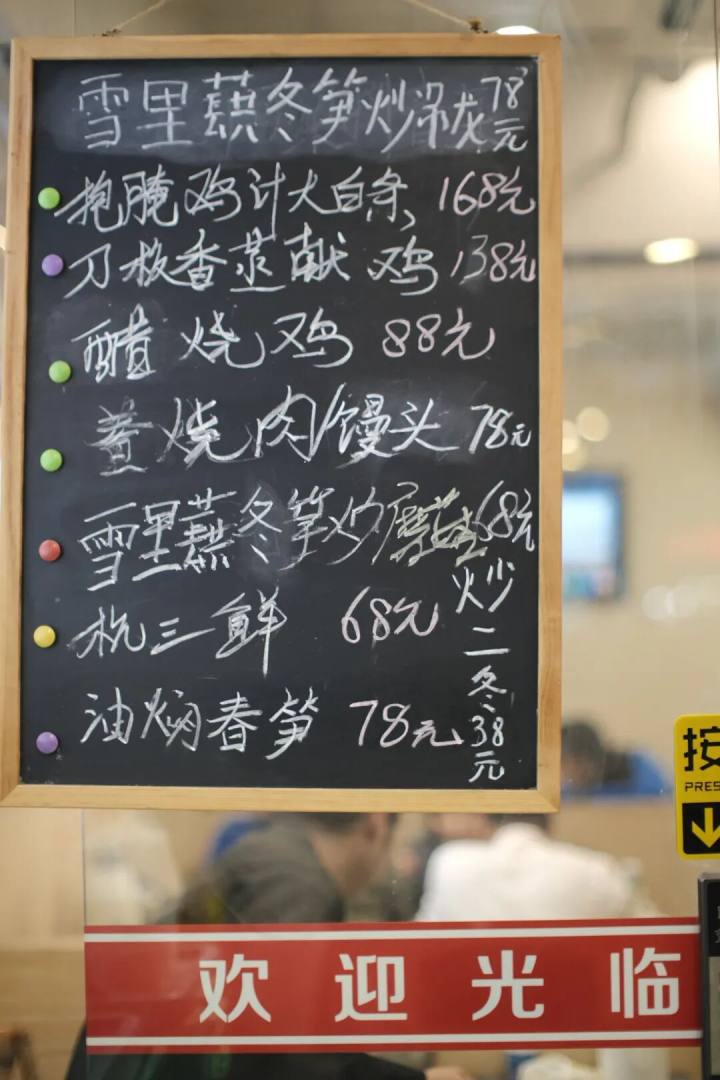 雪里蕻冬笋炒河龙 78元
抱腌鸡汁大白条 168元
刀板香蒸咸鸡 138元
醋烧鸡 88元
酱烧肉馒头 78元
雪里蕻冬笋炒蘑菇 68元
杭三鲜 68元
油焖春笋 78元
炒二冬38元
按
PRES
欢迎光临